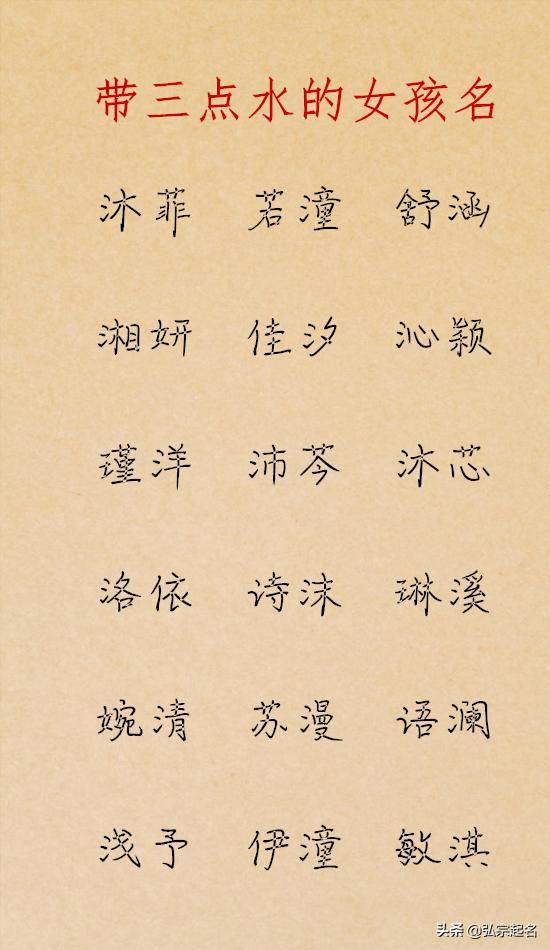 带三点水的女孩名
沐菲 若潼 舒涵
湘妍 佳汐 沁颖
瑾洋 沛芩 沐芯
洛依 诗沫 琳溪
婉清 苏漫 语澜
浅予 伊潼 敏淇
头条 @弘宗起名